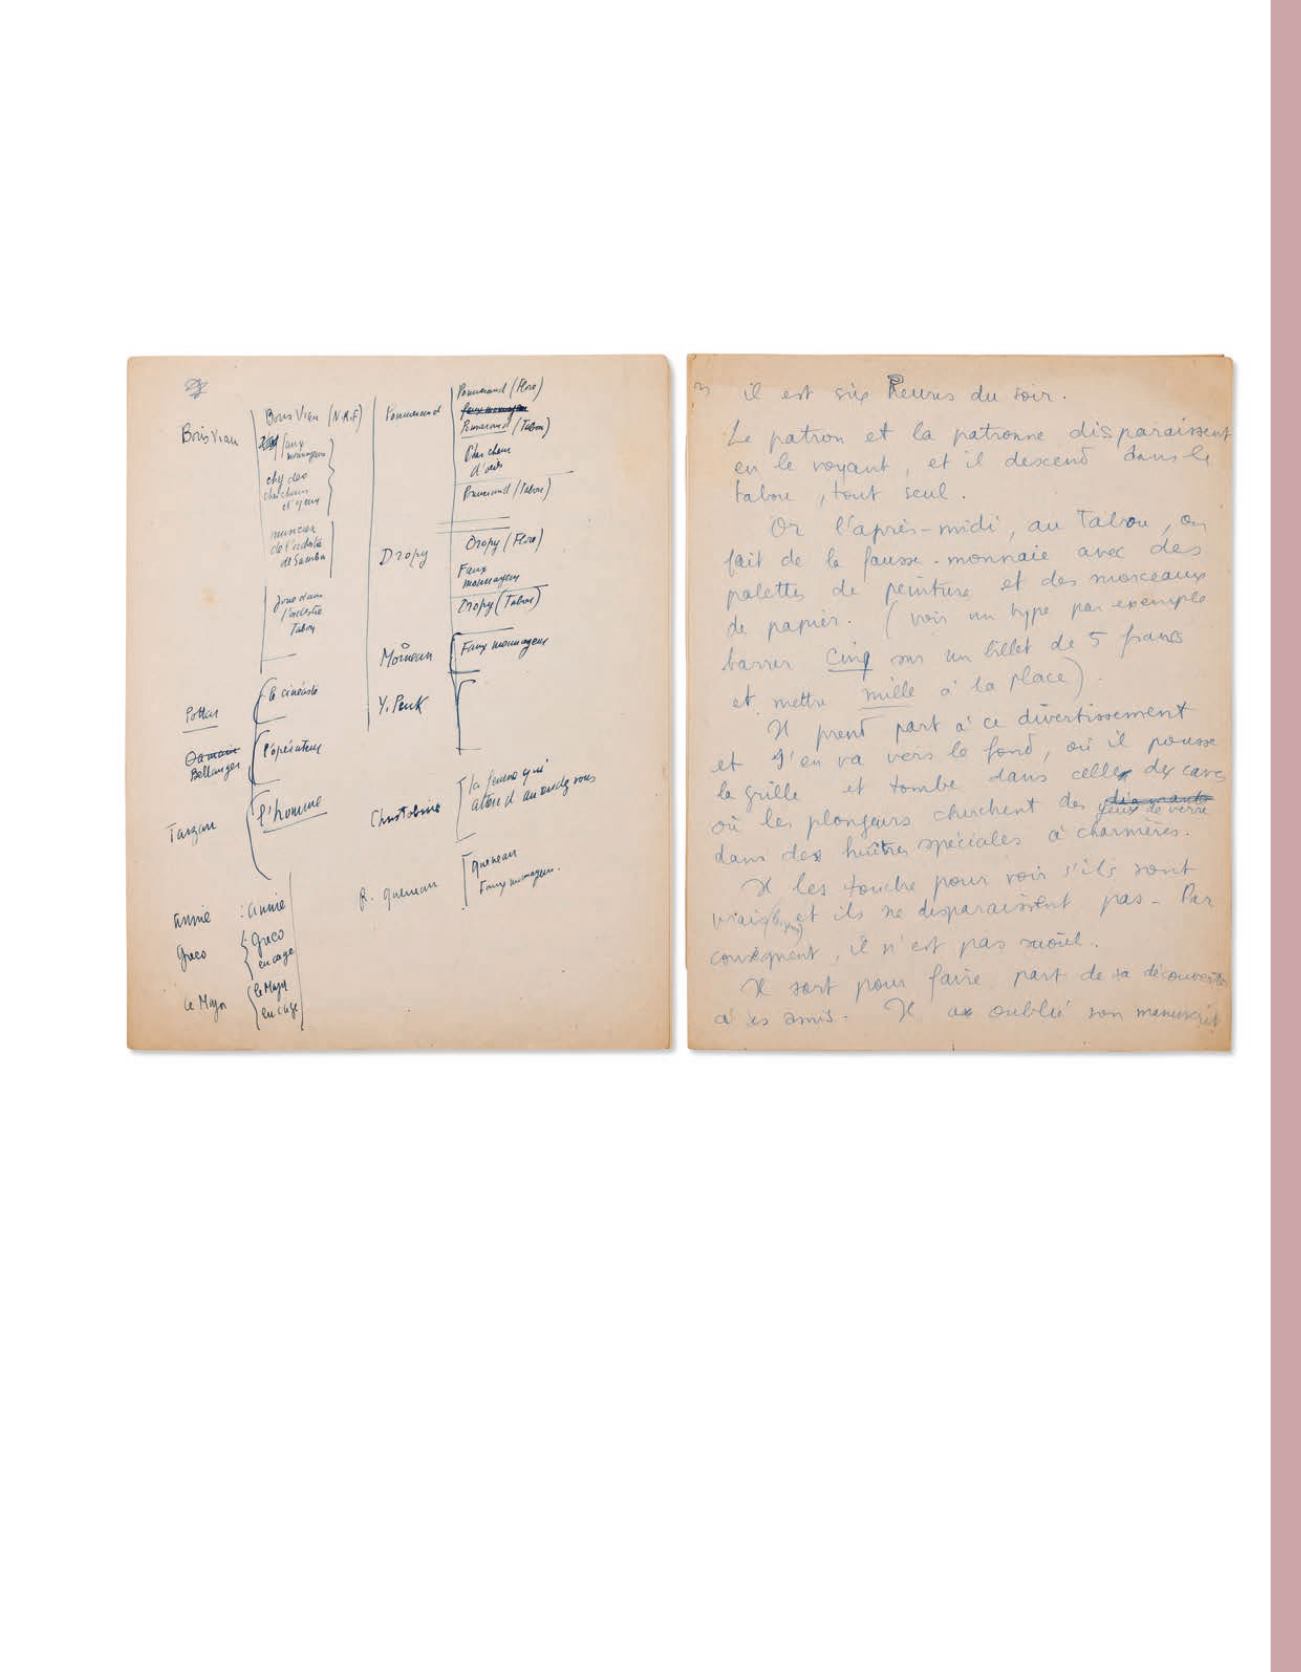 Boris Vian
Boris Vian (N.R.F)
faux
monnayeurs
chez des
chercheurs
musicien
de l'orchestre
de Samba
Joue dans
l'orchestre
Tabou
le cinéaste
Bellanger
l'opérateur
Tarzan
l'homme
Annie : Annie
Greco
Greco
en cage
le Major
le Major
en cage
Pommerand
Pommerand (Flore)
faux monnayeur
Pommerand (Tabou)
Chercheur
Pommerand (Tabou)
Dropy
Dropy (Flore)
Faux
monnayeurs
Dropy (Tabou)
Faux monnayeurs
la femme qui
attend au rendez vous
R. Queneau
Queneau
Faux monnayeur.
il est six heures du soir.
Le patron et la patronne disparaissent
en le voyant, et il descend dans le
tabou, tout seul.
Or l'après-midi, au Tabou, on
fait de la fausse-monnaie avec des
palettes de peinture et des morceaux
de papier. (voir un type par exemple
barrer Cinq sur un billet de 5 francs
et mettre mille à la place).
Il prend part à ce divertissement
et s'en va vers le fond, où il pousse
la grille et tombe dans celle des caves
où les plongeurs cherchent des diamants
yeux de verre
dans des huîtres spéciales à charnières.
Il les touche pour voir s'ils sont
vrais et ils ne disparaissent pas - Par
conséquent, il n'est pas saoûl.
Il sort pour faire part de sa découverte
à ses amis. Il a oublié son manuscrit